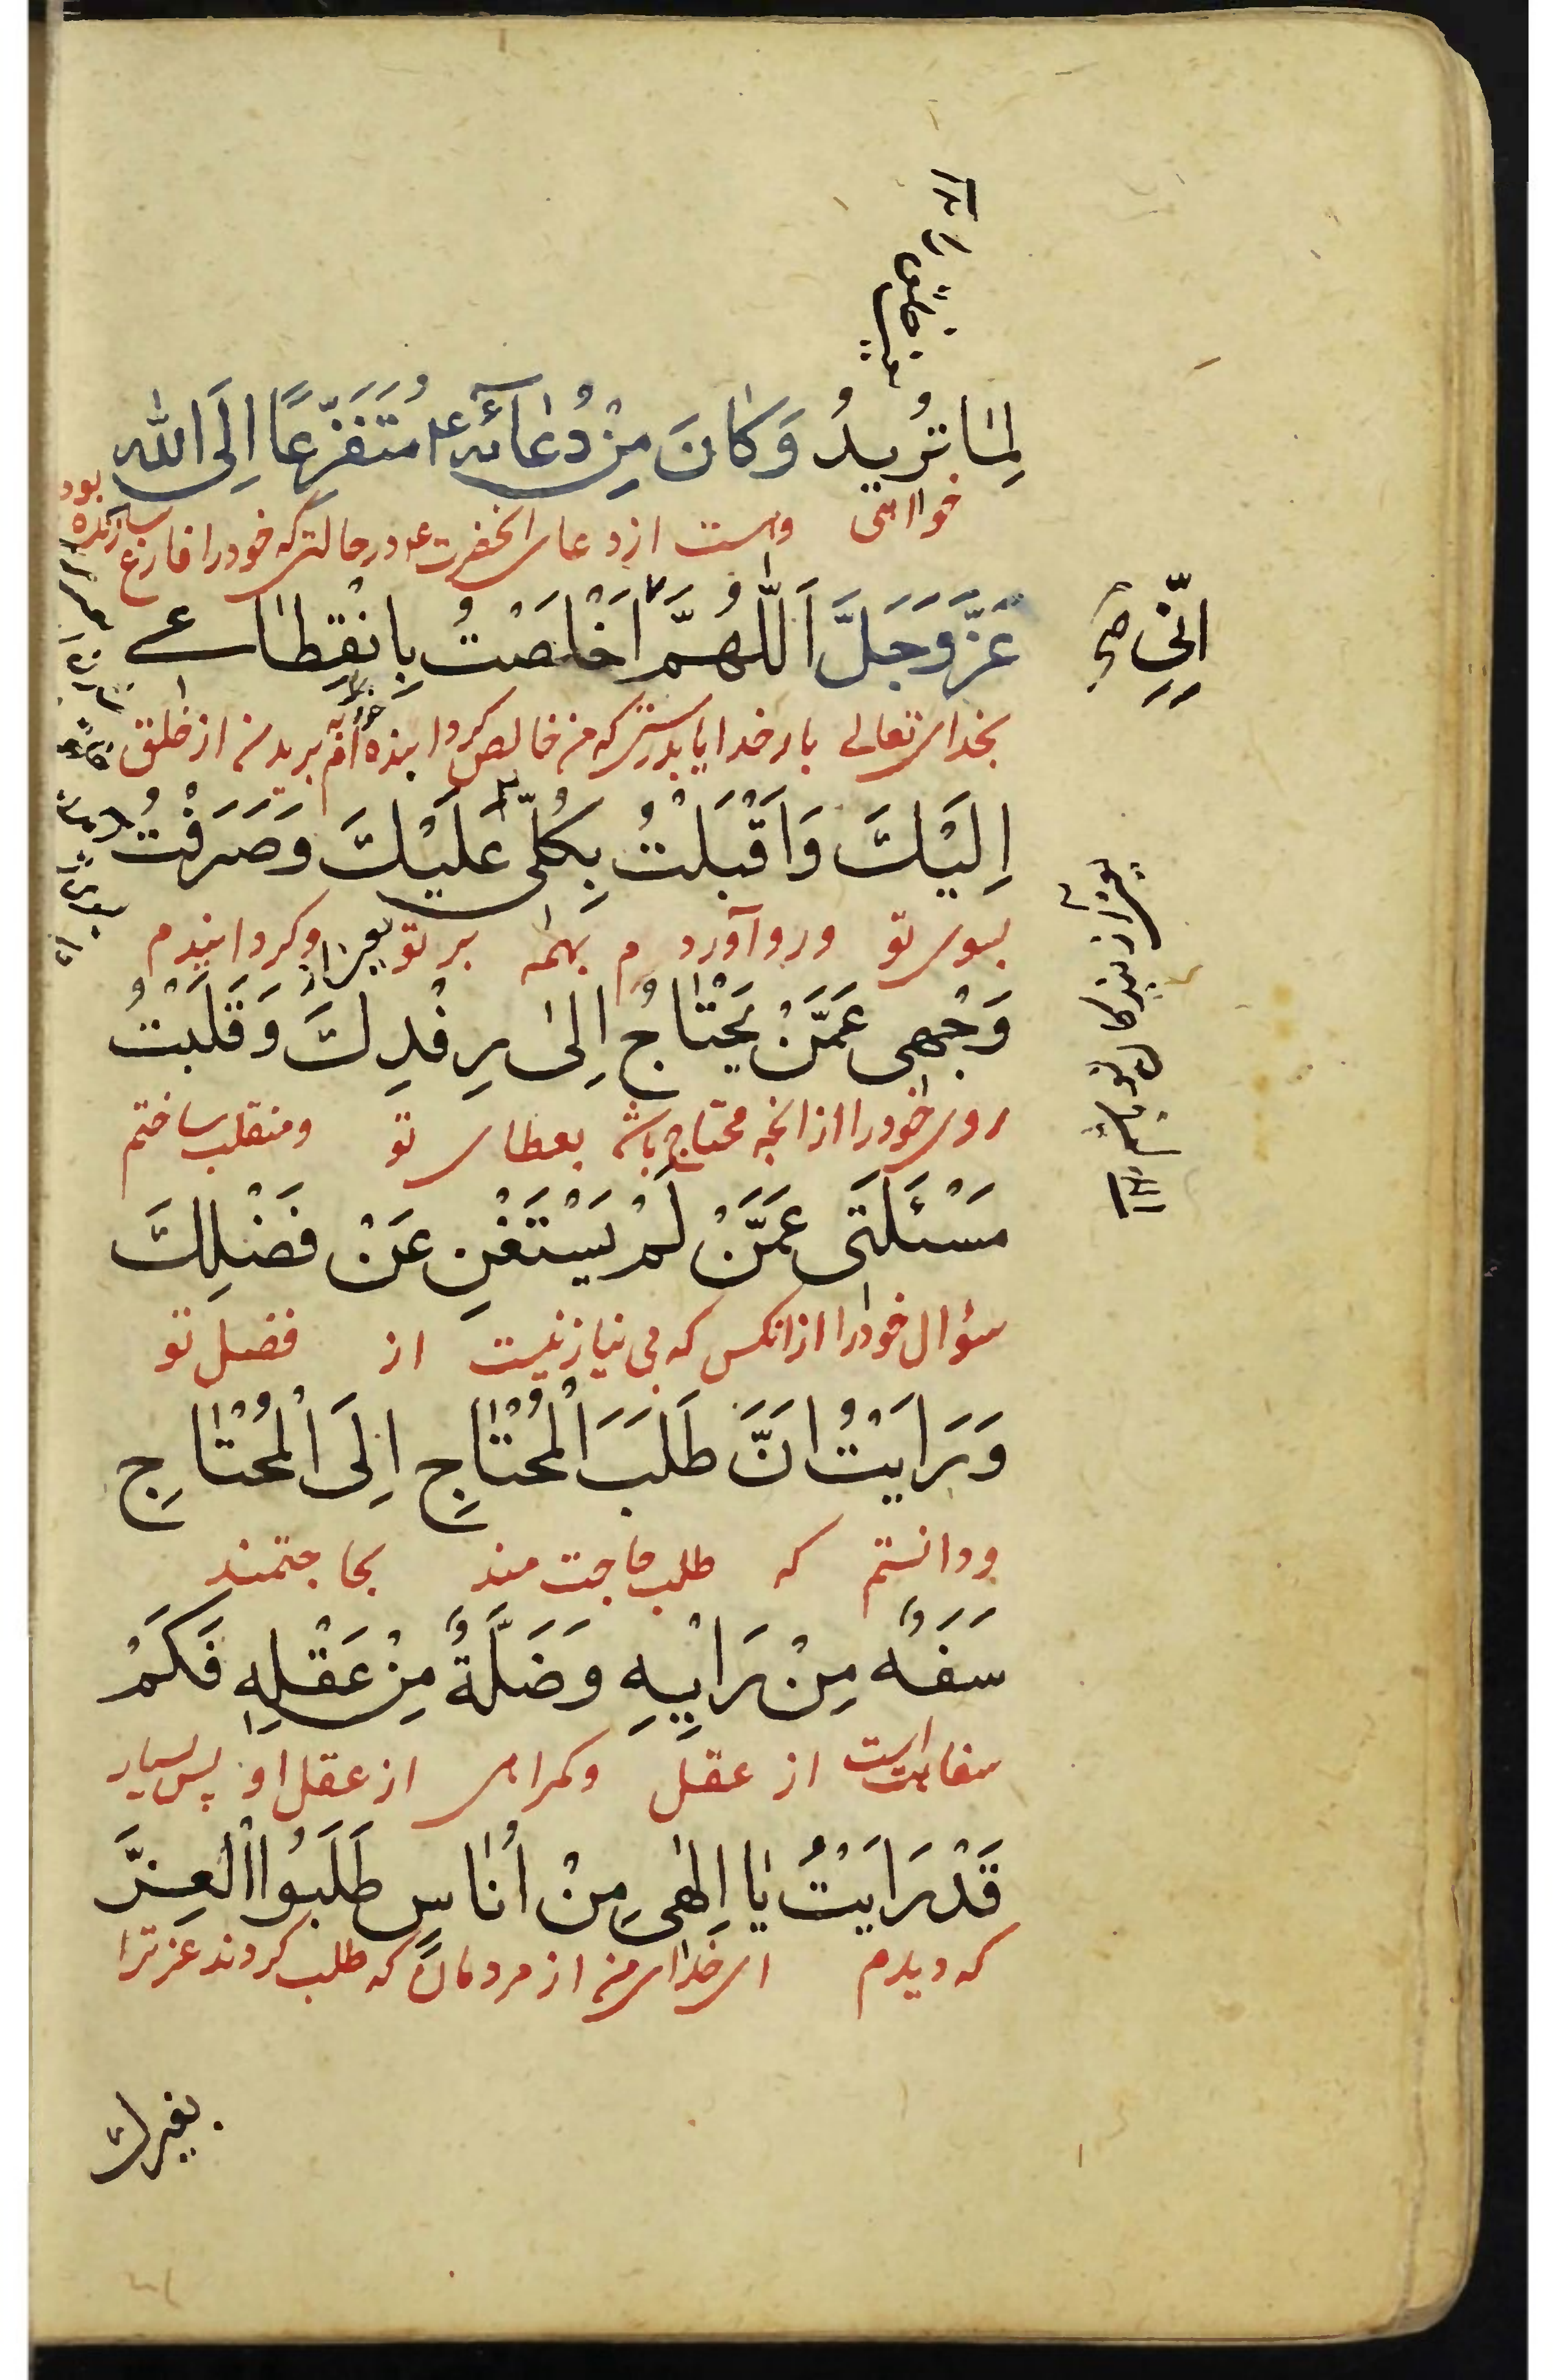 لِمٰا تُرِيدُ وَكٰانَ مِنْ دُعٰائِهِ ع مُتَفَزِّعًا اِلَى اللّٰهِ
خواهی واست از دعای انحضرت ع در حالتی که خود را فارغ سازنده بود
عَزَّ وَجَلَّ اَللّٰهُمَّ اَخْلَصْتُ بِانْقِطٰاعی
اِنّی صح
بخدای تعالی بار خدایا بدرستی که من خالص کردا بریدن از خلق
اِلَيْكَ وَاَقْبَلْتُ بِكُلّی عَلَيْكَ وَصَرَفْتُ
بسوی تو ورو آوردم بهمه بر تو وکردانیدم
وَجْهی عَمَّنْ يَحْتٰاجُ اِلىٰ رِفْدِكَ وَقَلَبْتُ
روی خود را از انچه محتاج باشد بعطای تو ومنقلب ساختم
مَسْئَلَتی عَمَّنْ لَمْ يَسْتَغْنِ عَنْ فَضْلِكَ
سؤال خود را از انکس که بی نیاز نیست از فضل تو
وَرَاَيْتُ اَنَّ طَلَبَ الْمُحْتٰاجِ اِلَى الْمُحْتٰاجِ
ودانستم که طلب حاجت مند بحاجتمند
سَفَهٌ مِنْ رَاْيِهِ وَضَلَّةٌ مِنْ عَقْلِهِ فَكَمْ
سفاهت است از عقل وکمراهی از عقل او پس بسیار
قَدْ رَاَيْتُ يٰا اِلٰهی مِنْ اُنٰاسٍ طَلَبُوا الْعِزَّ
که دیدم ای خدای من از مردمان که طلب کردند عزت را
بغیرك